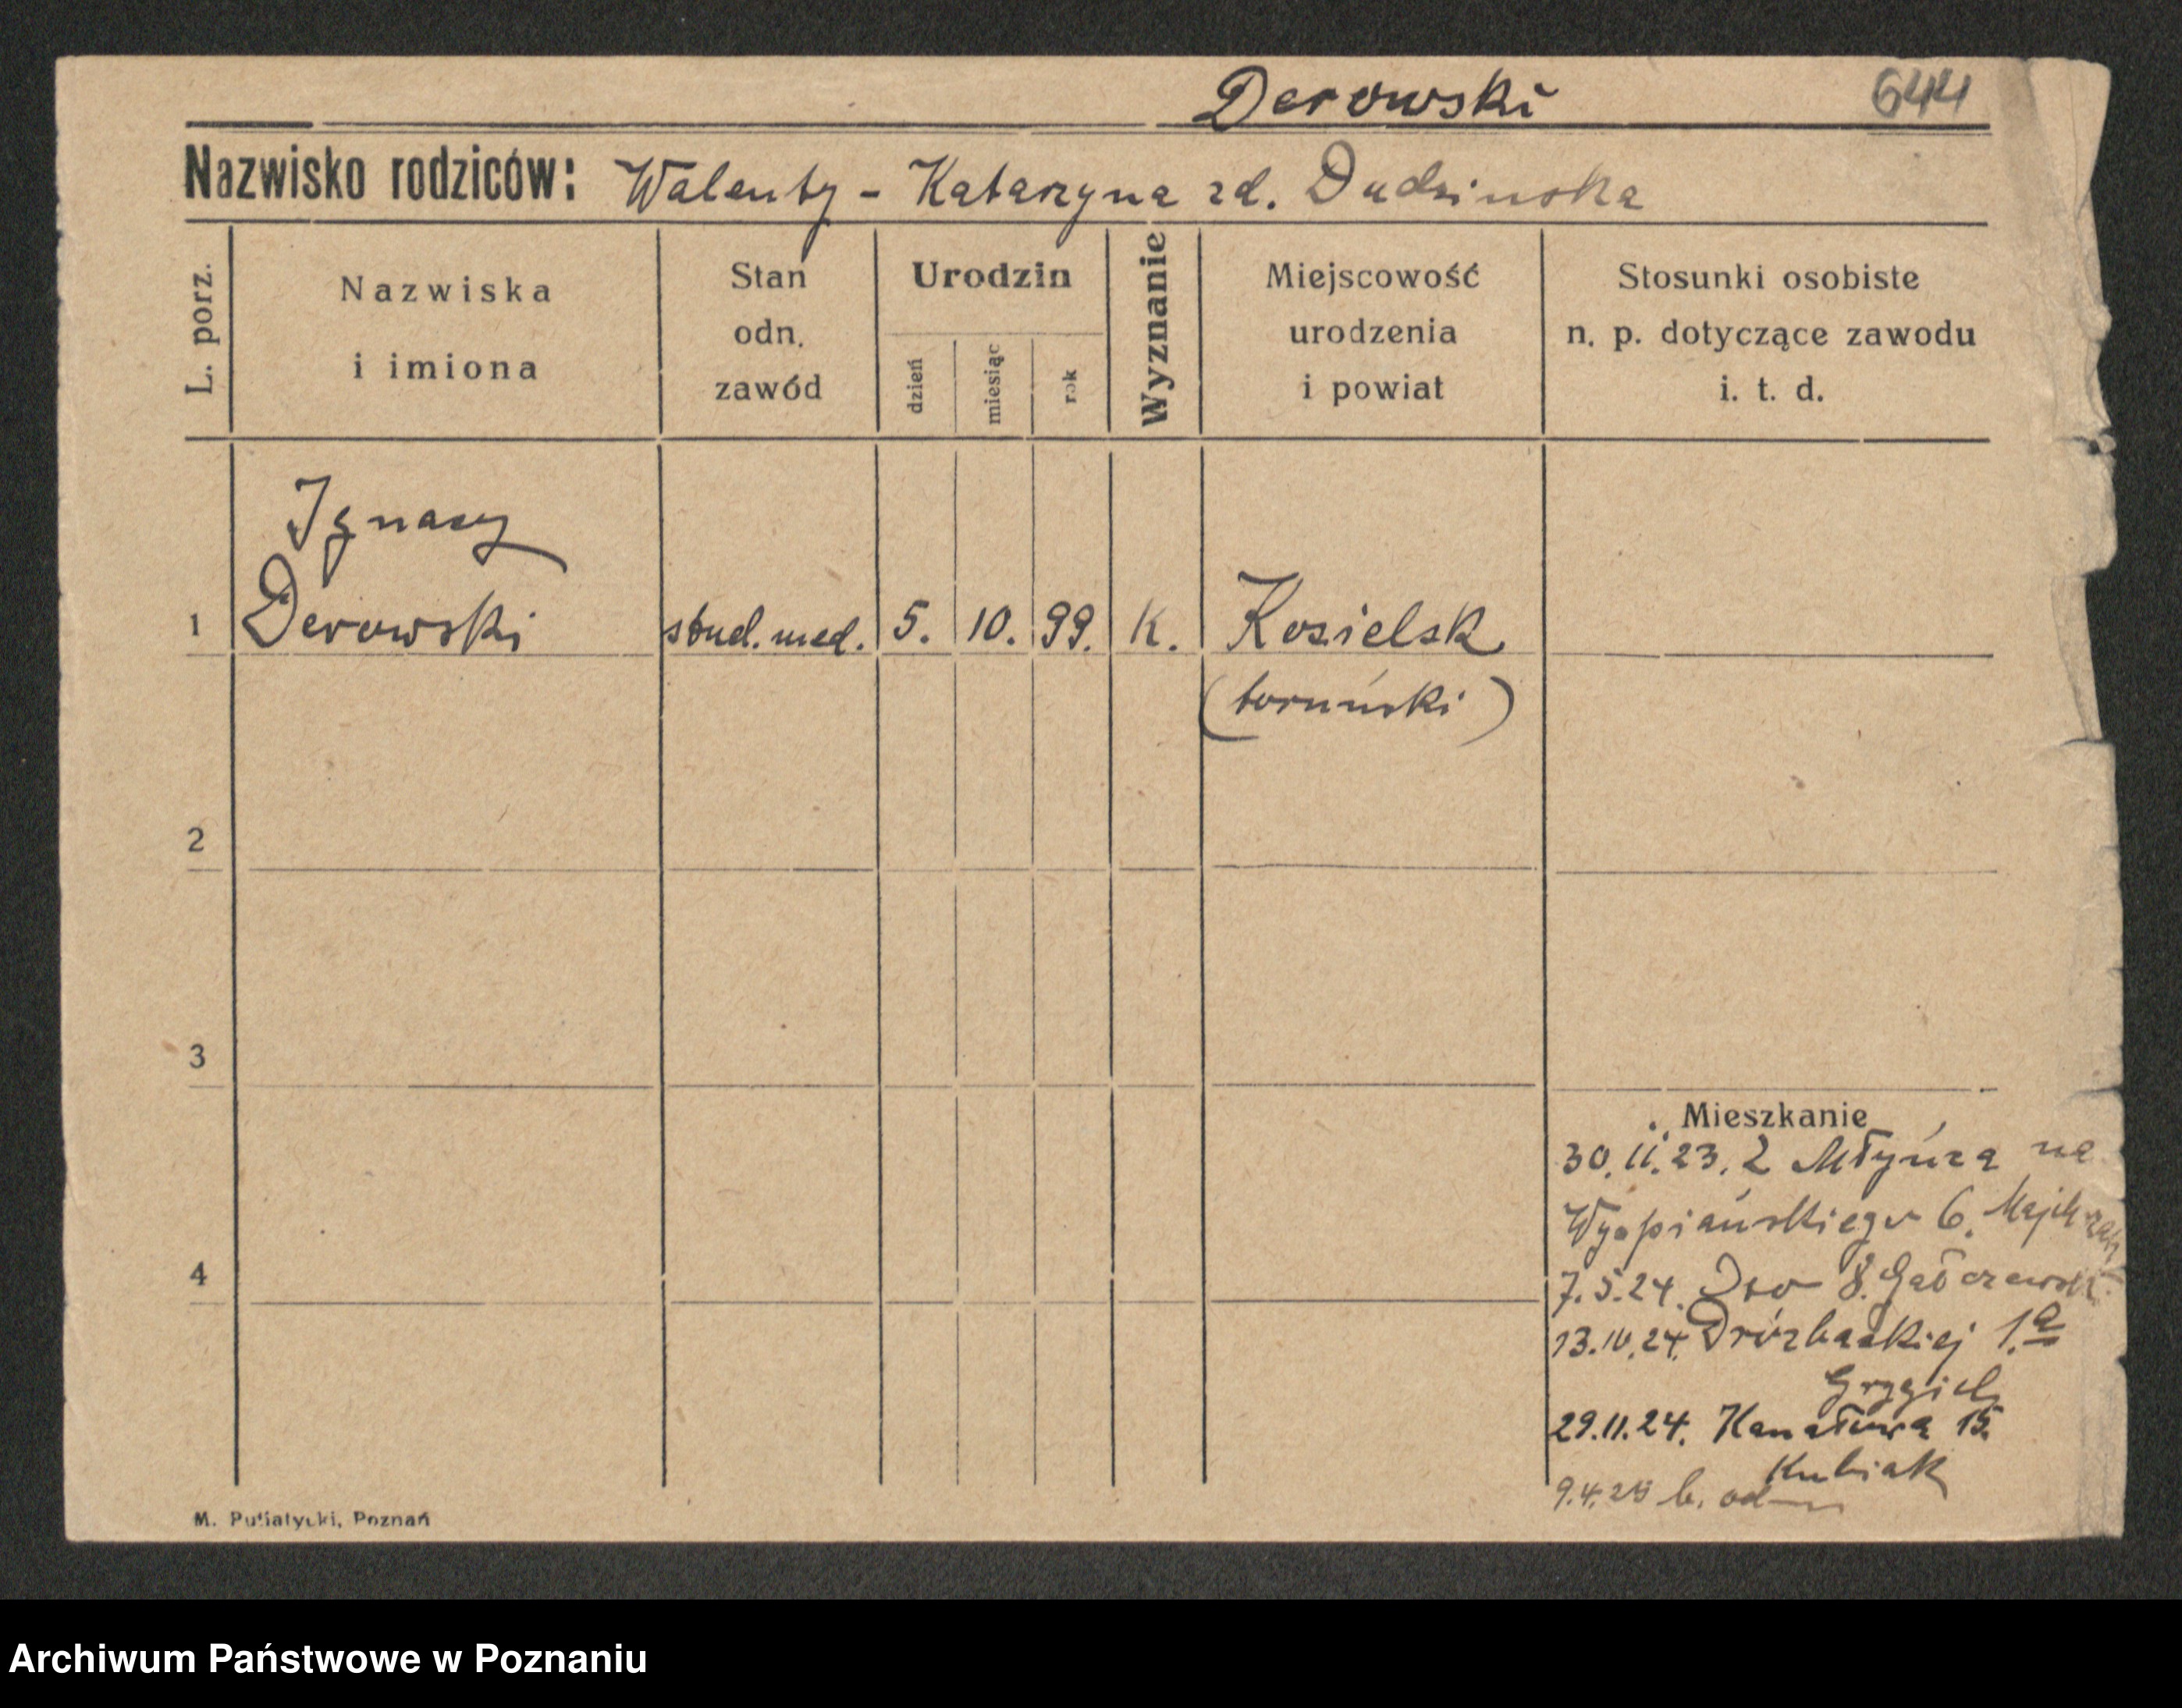 Derowski 644
Nazwisko rodziców: Walenty - Katarzyna zd. Dudzinska
L. porz.
Nazwiska
i imiona
Stan
odn.
zawód
Urodzin
dzień
miesiąc
rok
Wyznanie
Miejscowość
urodzenia
i powiat
Stosunki osobiste
n. p. dotyczące zawodu
i. t. d.
Ignacy
1 Derowski stud. med. 5. 10. 99. K. Kosielsk
(toruński)
2
3
Mieszkanie
30. 11. 23. z na
Wyspiańskiego 6. Majchrzak
4
7. 5. 24. 8.
13. IV. 24. Drużbackiej 1.a
29. 11. 24. Kanałowa 15.
Kubiak
9. 4. 25 b. od
M. Putiatycki, Poznań
Archiwum Państwowe w Poznaniu